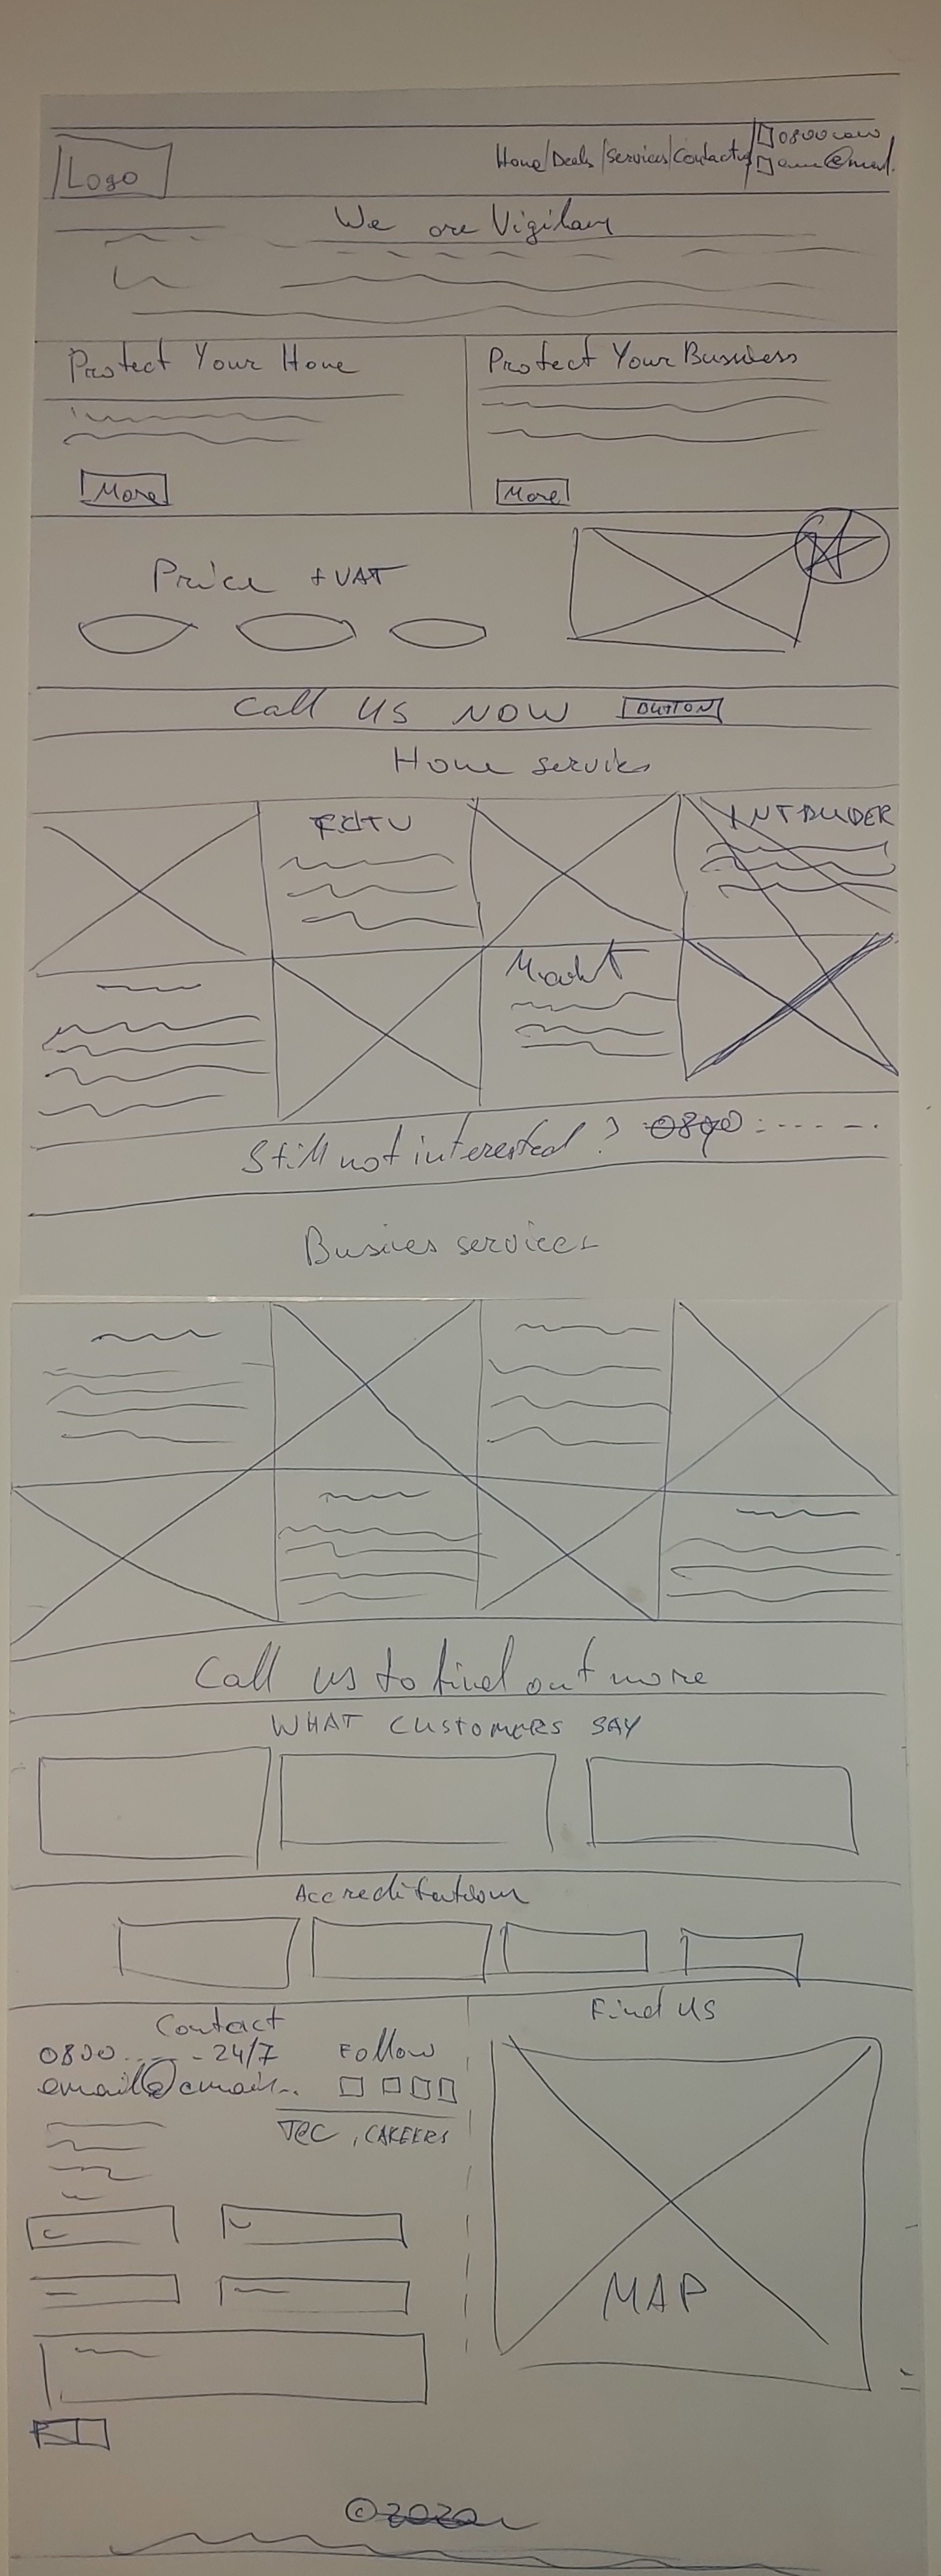 Logo
Home/Deals/Services/Contact us
0800
@email.
We are Vigilant
Protect Your Home
Protect Your Business
More
More
Price + VAT
Call US NOW BUTTON
Home services
INTRUDER
Still not interested? 0800
Busines services
Call us to find out more
WHAT CUSTOMERS SAY
Accreditations
Contact
0800 - 24/7
email@email..
Follow
T&C, CAREERS
Find US
MAP
© 2020